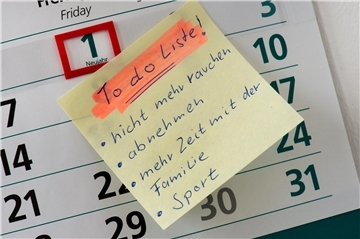 Friday
1
Neujahr
3
10
17
24
31
To do Liste!
• nicht mehr rauchen
• abnehmen
• mehr Zeit mit der
Familie
• Sport
7
14
21
22
28
29
30